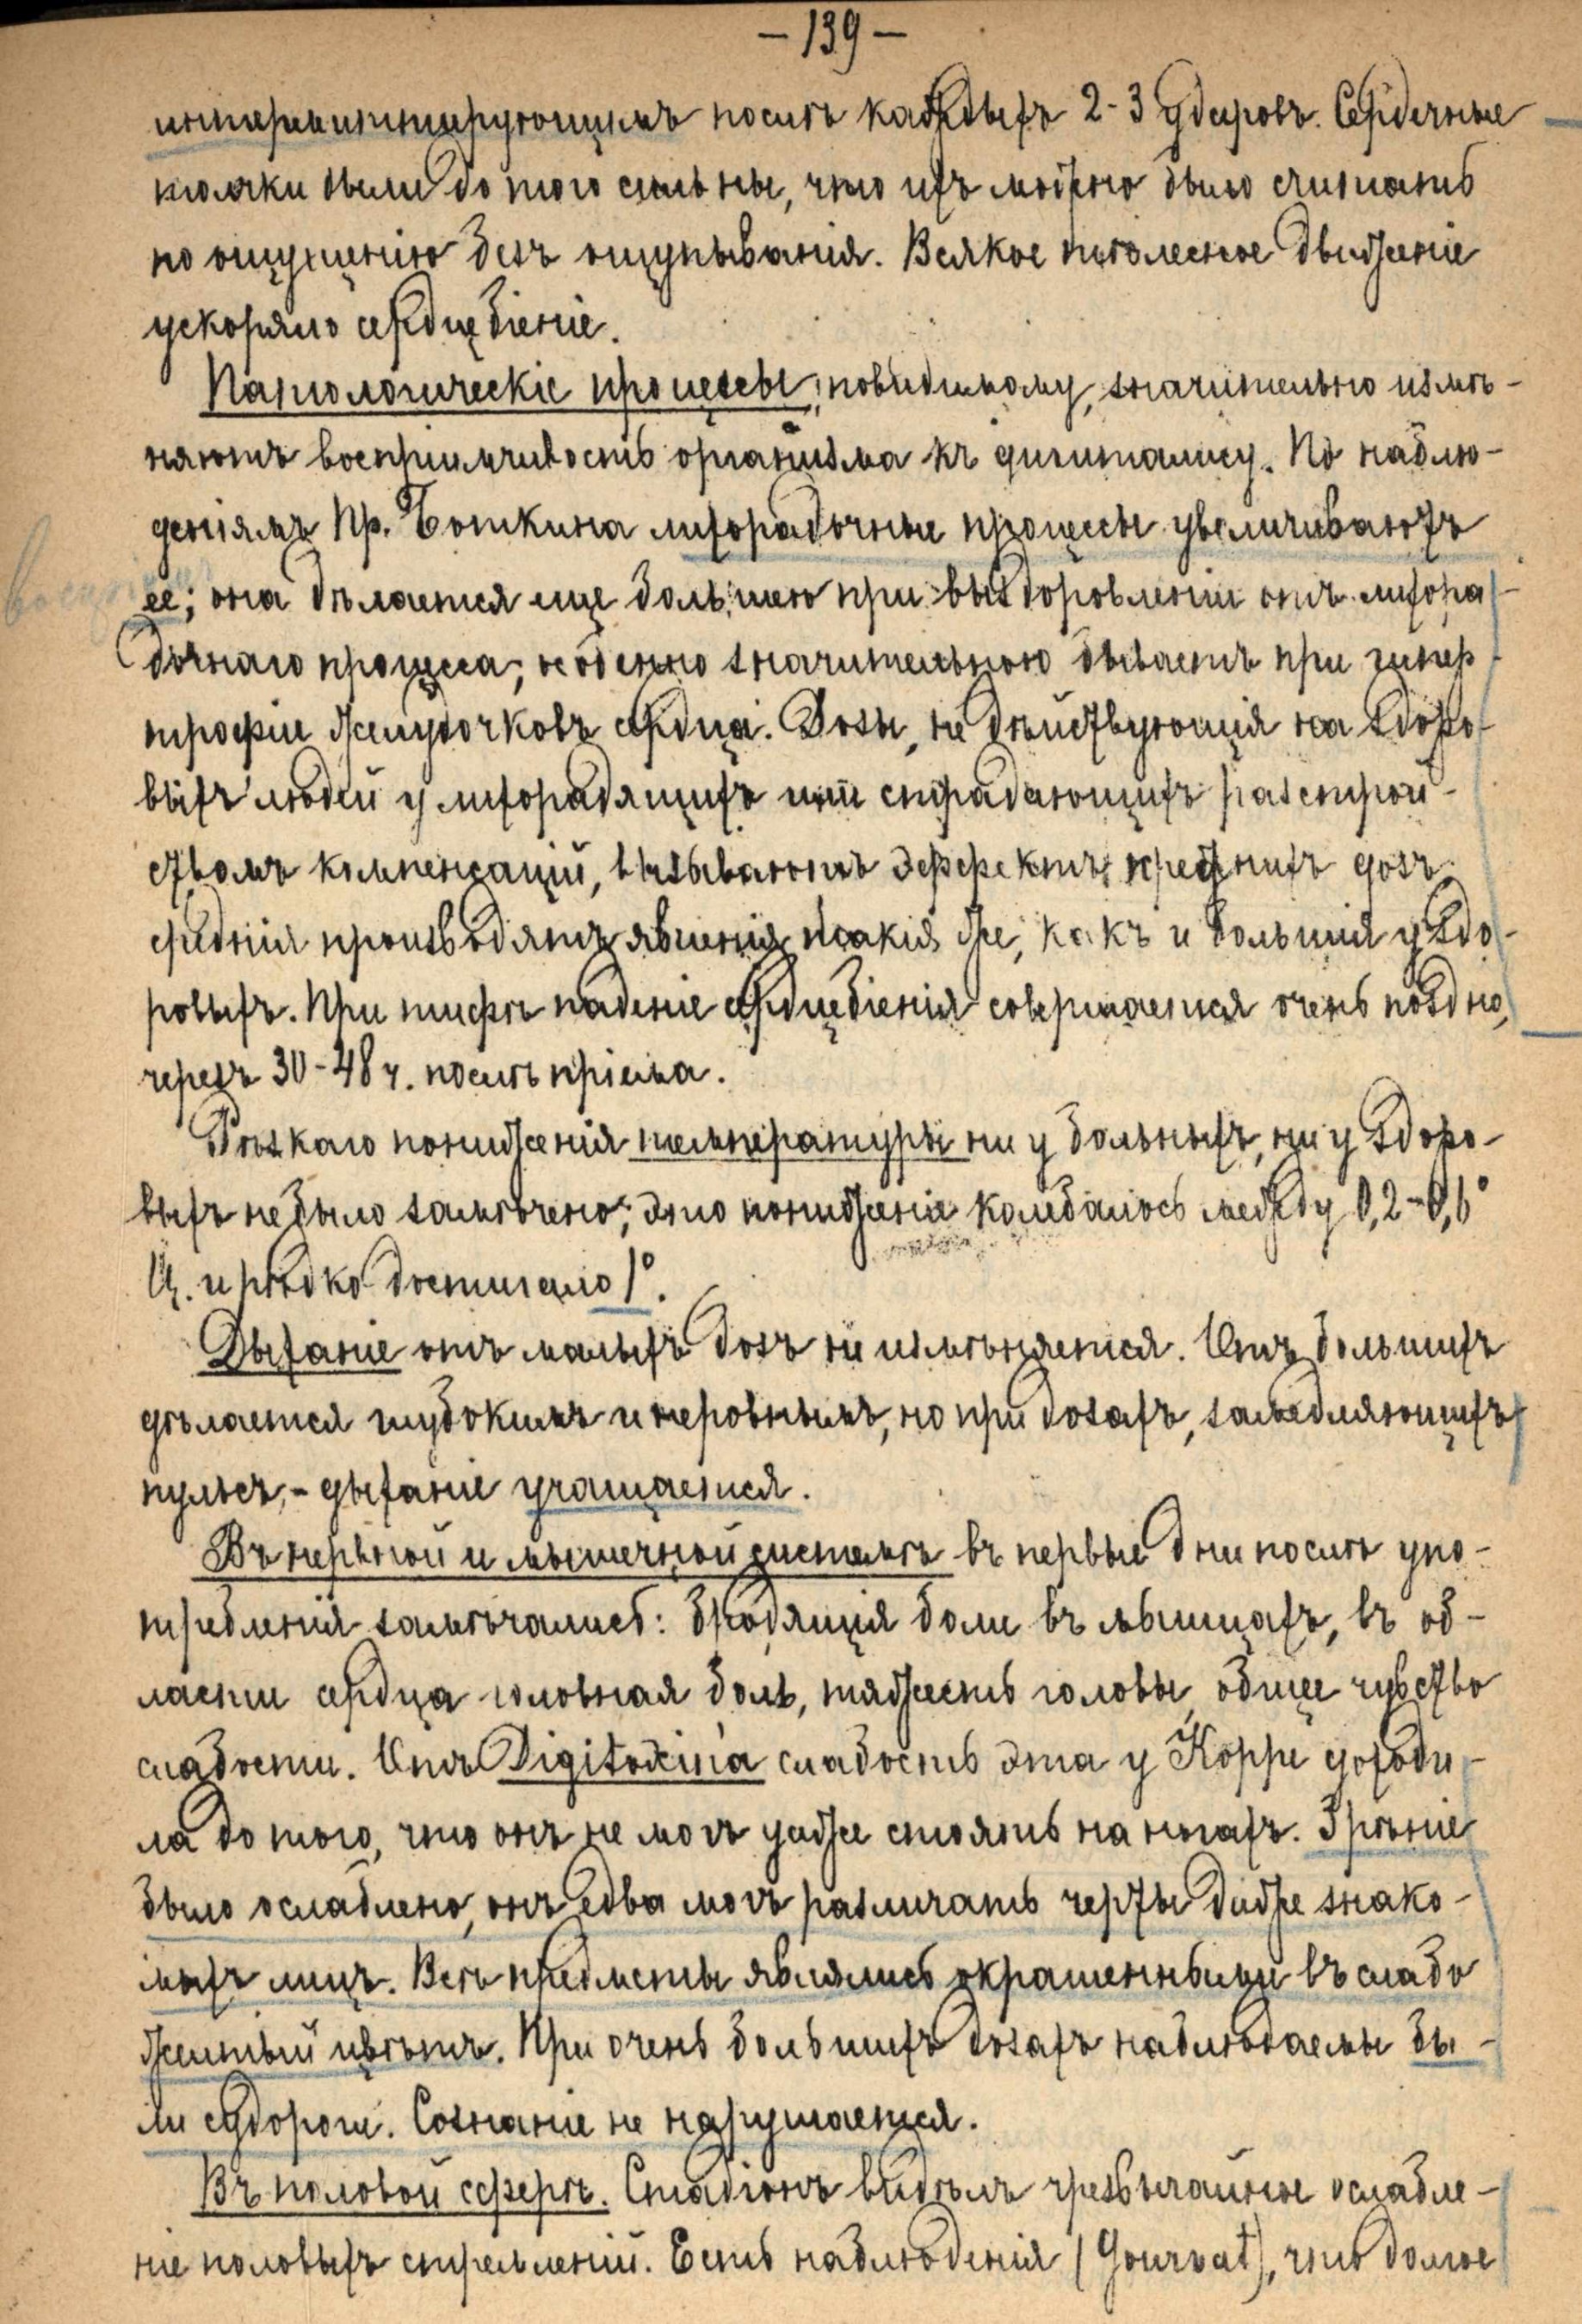 — 139 —
интермиттирующимъ послѣ каждыхъ 2-3 ударовъ. Сердечные
толчки были до того сильны, что ихъ можно было считать
по ощущенію безъ ощупыванія. Всякое тѣлесное движеніе
ускоряло сердцебіеніе.
Патологическіе процессы, повидимому, значительно измѣ-
няютъ воспріимчивость организма къ дигиталису. По наблю-
деніямъ Пр. Боткина лихорадочные процессы увеличиваютъ
ее; она дѣлается еще большею при выздоровленіи отъ лихора
дочнаго процесса; особенно значительною бываетъ при гипер
трофіи желудочковъ сердца. Дозы, не дѣйствующія на здоро-
выхъ людей у лихорадящихъ или страдающихъ разстрой-
ствомъ компенсацій, вызываютъ эффектъ среднихъ дозъ.
средній производятъ явленія такія же, какъ и большія у здо-
ровыхъ. При тифѣ паденіе сердцебіенія совершается очень поздно,
черезъ 30-48 ч. послѣ пріема.
Рѣзкаго пониженія температуры ни у больныхъ, ни у здоро-
выхъ не было замѣчено; это пониженіе колебалось между 0,2-0,6°
Ц. и рѣдко достигало 1°.
Дыханіе отъ малыхъ дозъ не измѣняется. Отъ большихъ
дѣлается глубокимъ и неровнымъ, но при дозахъ, замедляющихъ
пульсъ,- дыханіе учащается.
Въ нервной и мышечной системѣ въ первые дни послѣ упо-
требленія замѣчались: бродящія боли въ мышцахъ, въ об-
ласти сердца головная боль, тяжесть головы, общее чувство
слабости. Отъ Digitoxin'a слабость эта у Коррé доходи-
ла до того, что онъ не могъ даже стоять на ногахъ. Зрѣніе
было ослаблено, онъ едва могъ различать черты даже знако-
мыхъ лицъ. Всѣ предметы являлись окрашенными въ слабо
желтый цвѣтъ. При очень большихъ дозахъ наблюдаемы бы-
ли судороги. Сознаніе не нарушается.
Въ половой сферѣ. Стадіонъ видѣлъ чрезвычайное ослабле-
ніе половыхъ стремленій. Есть наблюденія (Gourvat), что долгое